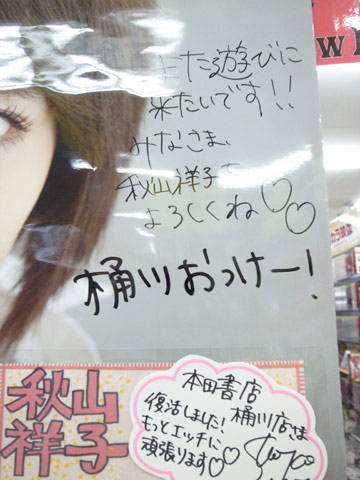 また遊びに
来たいです!!
みなさま、
秋山祥子を
よろしくね♡♡
桶川おっけー!
秋山
祥子
本田書店
桶川店さま
復活しました!
もっとエッチに
頑張ります♡♡
W